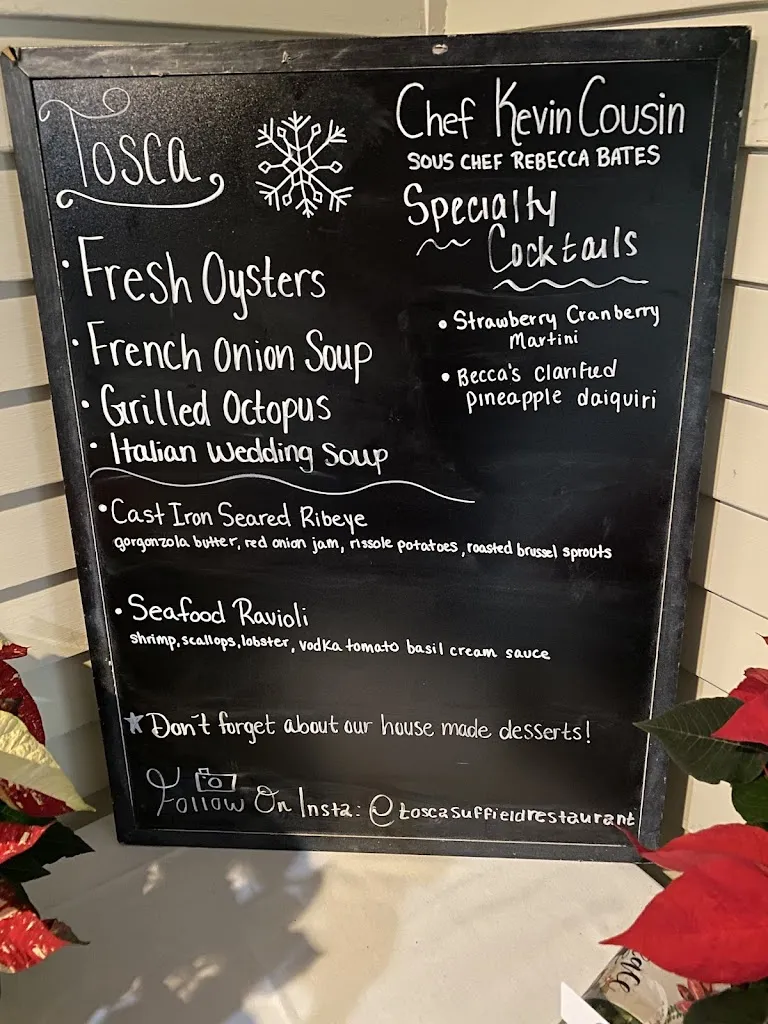 Tosca
Chef Kevin Cousin
SOUS CHEF REBECCA BATES
Specialty
Cocktails
• Strawberry Cranberry
Martini
• Becca's clarified
pineapple daiquiri
• Fresh Oysters
• French Onion Soup
• Grilled Octopus
• Italian Wedding Soup
• Cast Iron Seared Ribeye
gorgonzola butter, red onion jam, rissole potatoes, roasted brussel sprouts
• Seafood Ravioli
shrimp, scallops, lobster, vodka tomato basil cream sauce
★ Don't forget about our house made desserts!
Follow On Insta: @toscasuffieldrestaurant